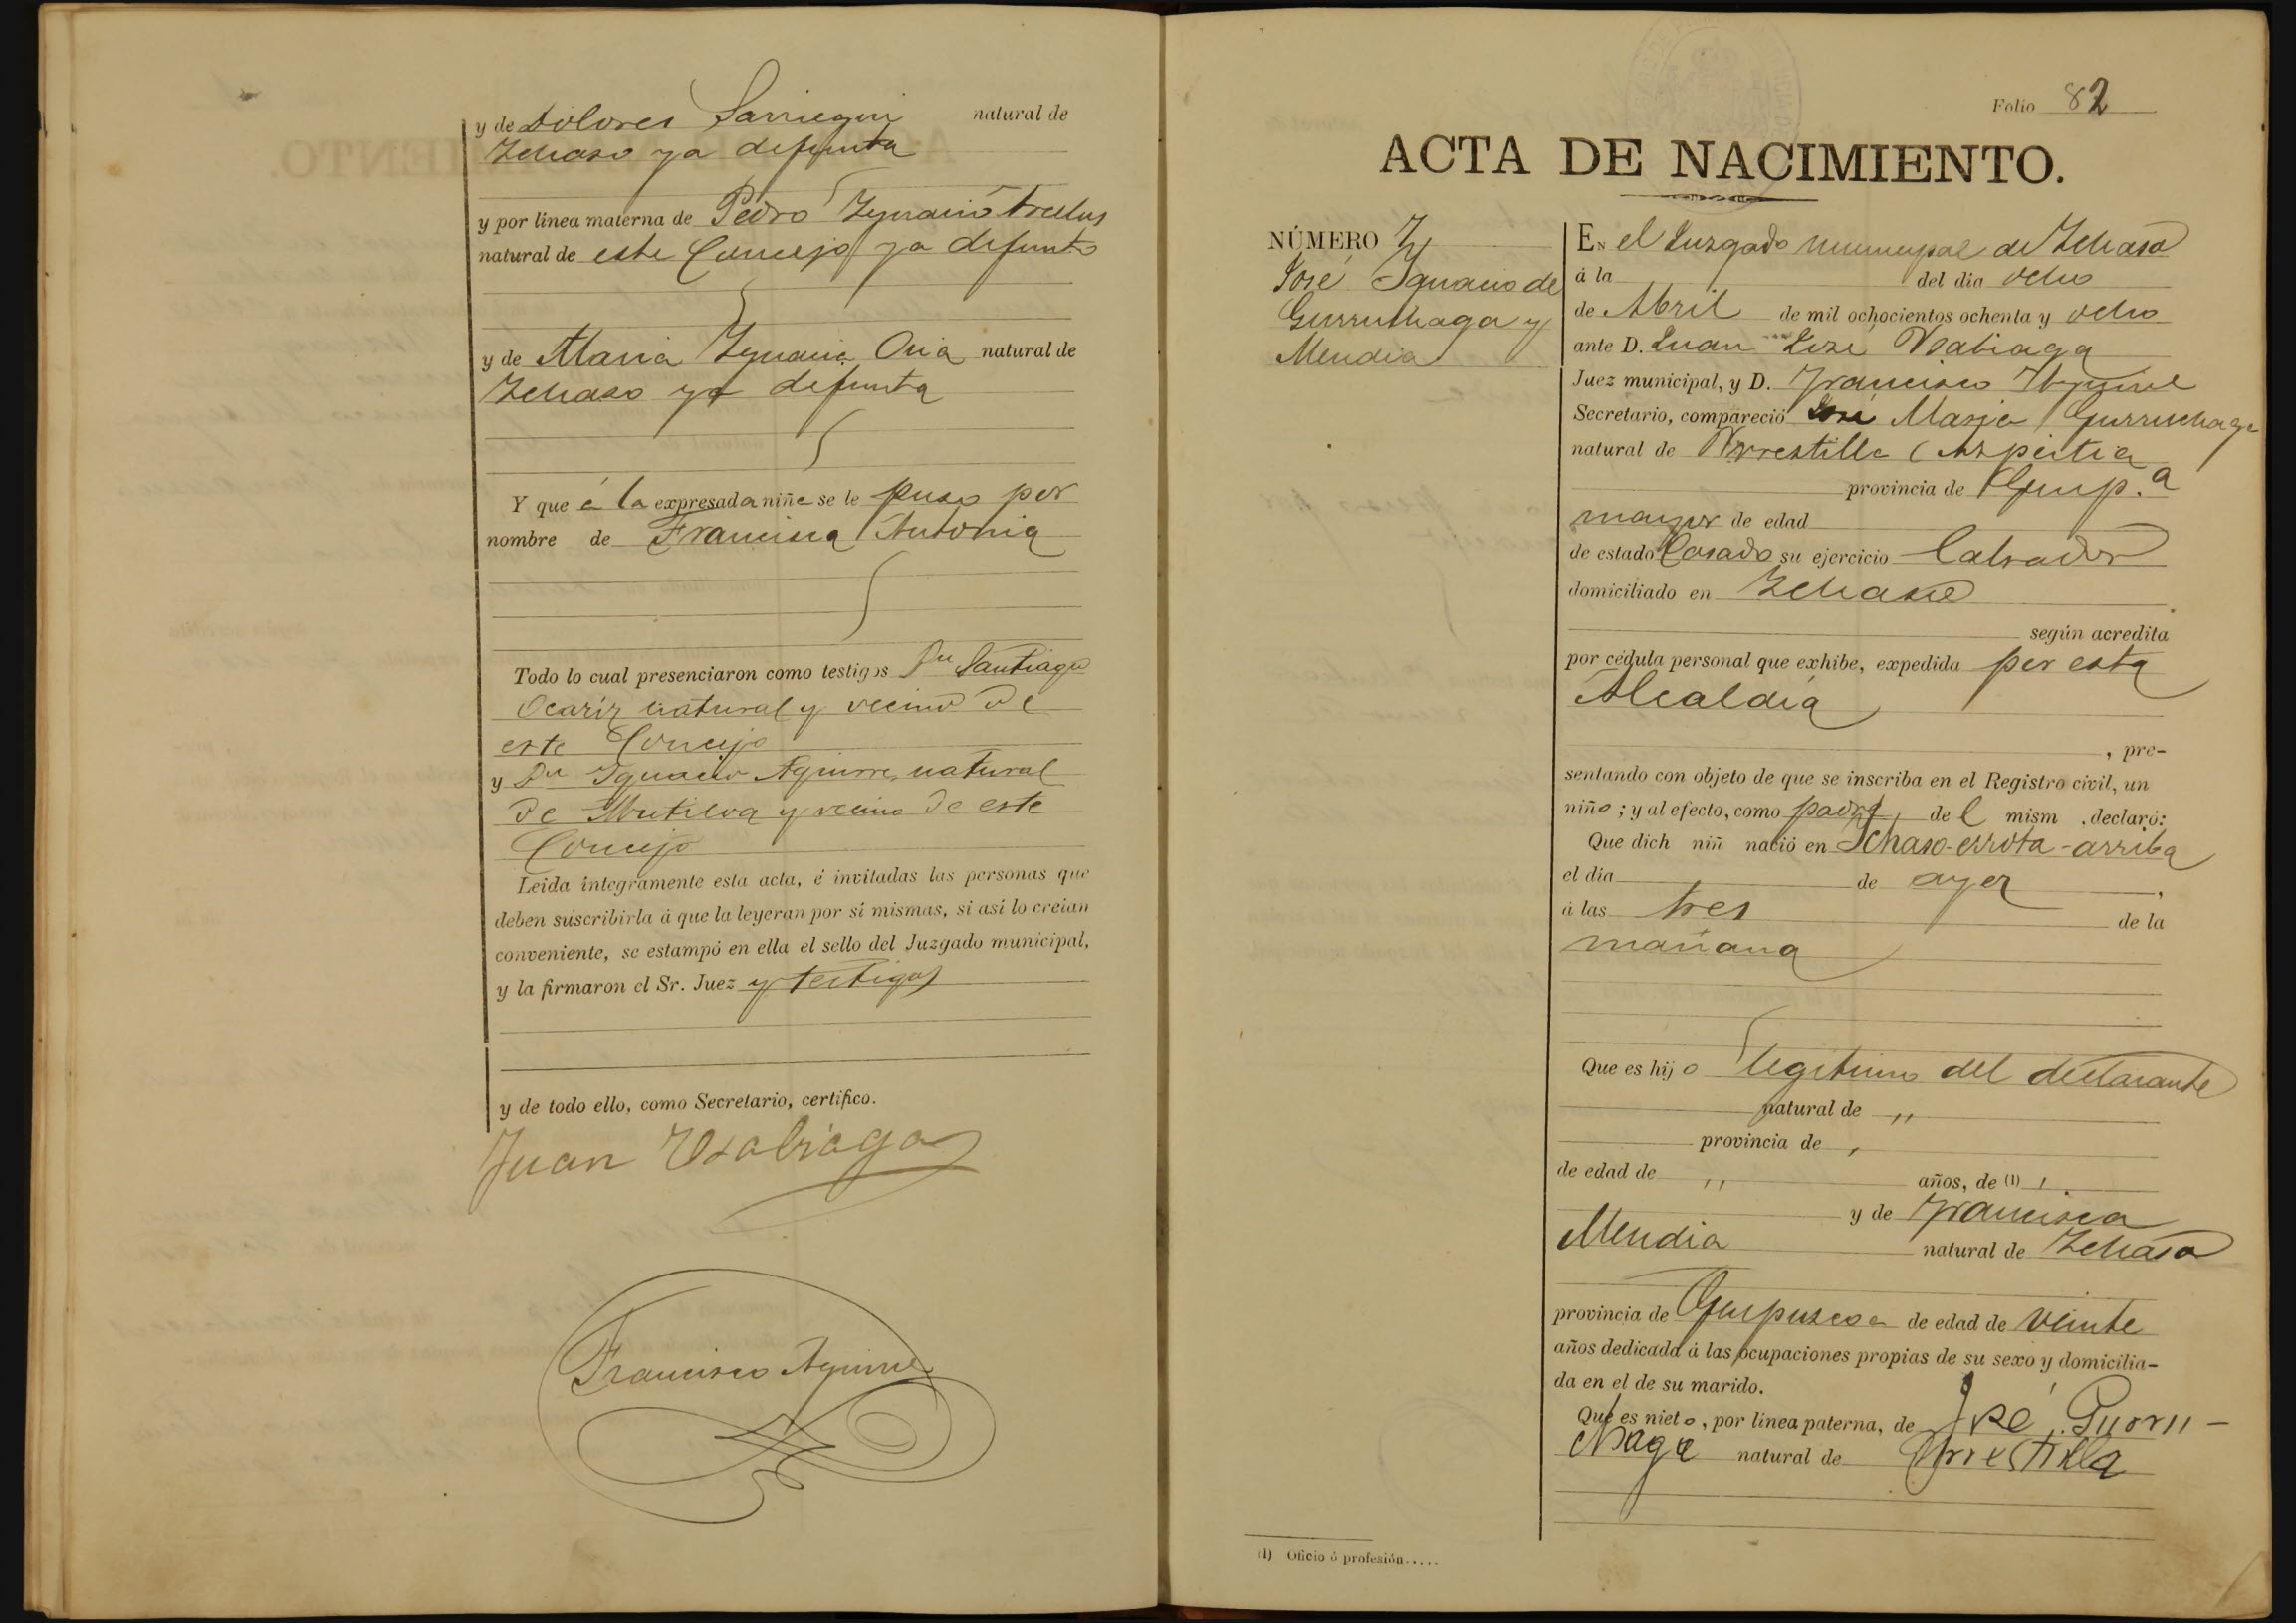 y de Dolores Sarriegui natural de
Ichaso ya defunta
y por línea materna de Pedro Ygnacio Arcelus
natural de este Concejo ya defunto
y de Maria Ygnacia Oria natural de
Ichaso ya defunta
Y que á la expresada niña se le puso por
nombre de Francisca Antonia
Todo lo cual presenciaron como testigos Dn Santiago
Ocariz natural y vecino de
este Concejo
y Dn Ignacio Aguirre, natural
de Mutiloa y vecino de este
Concejo
Leida íntegramente esta acta, é invitadas las personas que
deben suscribirla á que la leyeran por sí mismas, si así lo creían
conveniente, se estampó en ella el sello del Juzgado municipal,
y la firmaron el Sr. Juez y testigos
y de todo ello, como Secretario, certifico.
Juan Usabiaga
Francisco Aguirre
Folio 82
ACTA DE NACIMIENTO.
NÚMERO 7
José Ignacio de
Gurruchaga y
Mendia
EN el Juzgado municipal de Ichaso
á la del dia ocho
de Abril de mil ochocientos ochenta y ocho
ante D. Juan José Usabiaga
Juez municipal, y D. Francisco Aguirre
Secretario, compareció José Maria Gurruchaga
natural de Urrestilla (Azpeitia
provincia de Guip.a
mayor de edad
de estado Casado su ejercicio labrador
domiciliado en Ichaso
según acredita
por cédula personal que exhibe, expedida por esta
Alcaldia
, pre-
sentando con objeto de que se inscriba en el Registro civil, un
niño; y al efecto, como padre, de l mism , declaró:
Que dich niñ nació en Ichaso-errota-arriba
el día de ayer ,
á las tres de la
mañana
Que es hijo legitimo del declarante
natural de ,,
provincia de ,
de edad de ,, años, de (1) ,
y de Francisca
Mendia natural de Ichaso
provincia de Guipuzcoa de edad de veinte
años dedicada á las ocupaciones propias de su sexo y domicilia-
da en el de su marido.
Que es nieto, por línea paterna, de José Gurru-
chaga natural de Urrestilla
(1) Oficio ó profesión.....